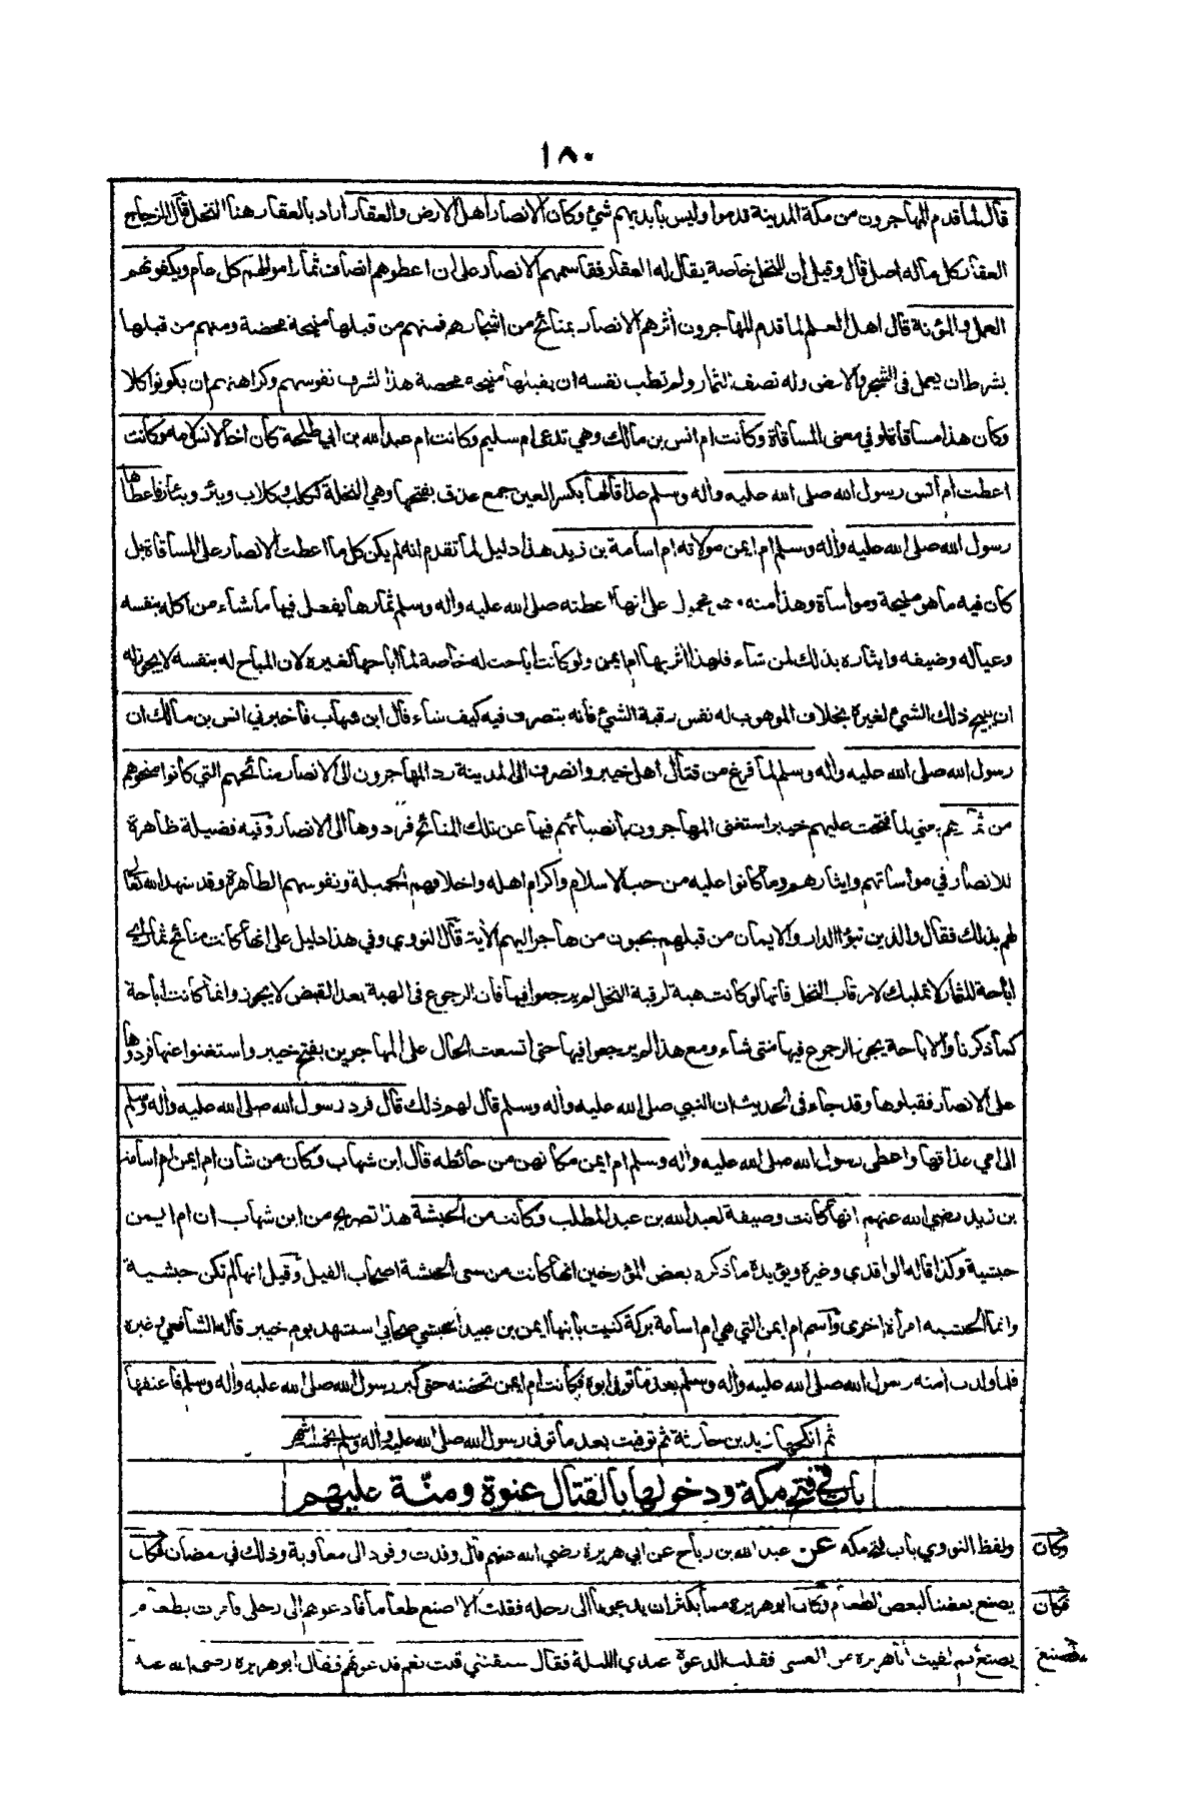 ١٨٠
قال لما قدم المهاجرون من مكة المدينة قدموا وليس بايديهم شيئ وكان الانصار اهل الارض والعقار اراد بالعقار هنا النخل قال الزجاج
العقار كل ماله اصل قال وقيل ان النخل خاصة يقال له العقار فقاسمهم الانصار على ان اعطوهم انصاف ثمار اموالهم كل عام ويكفونهم
العمل والمؤنة قال اهل العلم لما قدم المهاجرون أثرهم الانصار بمنائح من اشجارهم فمنهم من قبلها منيحة محضة ومنهم من قبلها
بشرط ان يعمل فى الشجر والارض وله نصف الثمار ولم تطب نفسه ان يقبلها منيحة محضة هذا لشرف نفوسهم وكراهتهم ان يكونوا كلا
وكان هذا مساقاة او في معنى المساقاة وكانت ام انس بن مالك وهي تدعى ام سليم وكانت ام عبد الله بن ابي طلحة كان اخا لانس لامه وكانت
اعطت ام انس رسول الله صلى الله عليه واله وسلم عذاقا لها بكسر العين جمع عذق بفتحها وهي النخلة ككلب وكلاب وبئر وبئار فاعطاها
رسول الله صلى الله عليه واله وسلم ام ايمن مولاته ام اسامة بن زيد هذا دليل لما تقدم انه لم يكن كل ما اعطت الانصار على المساقاة بل
كان فيه ما هو منيحة ومواساة وهذا منه وهو محمول على انها اعطته صلى الله عليه واله وسلم ثمارها يفعل فيها ما شاء من اكله بنفسه
وعياله وضيفه وايثاره بذلك لمن شاء فلهذا أثر بها ام ايمن ولو كانت اباحت له خاصة لما اباحها لغيره لان المباح له بنفسه لا يجوز له
ان يبيح ذلك الشئ لغيره بخلاف الموهوب له نفس رقبة الشئ فانه يتصرف فيه كيف شاء قال ابن شهاب فاخبرني انس بن مالك ان
رسول الله صلى الله عليه واله وسلم لما فرغ من قتال اهل خيبر وانصرف الى المدينة رد المهاجرون الى الانصار منائحهم التي كانوا منحوهم
من ثمارهم يعني لما فتحت عليهم خيبر استغنى المهاجرون بانصبائهم فيها عن تلك المنائح فردوها الى الانصار وفيه فضيلة ظاهرة
للانصار في مواساتهم وايثارهم وما كانوا عليه من حب الاسلام واكرام اهله واخلاقهم الجميلة ونفوسهم الطاهرة وقد شهد الله تعالى
لهم بذلك فقال والذين تبوؤا الدار والايمان من قبلهم يحبون من هاجر اليهم الأية قال النووي وفي هذا دليل على انها كانت منائح ثمار اي
اباحة للثمار لا تمليك لارقاب النخل فانها لو كانت هبة لرقبة النخل لم يرجعوا فيها فان الرجوع فى الهبة بعد القبض لا يجوز وانما كانت اباحة
كما ذكرنا والاباحة يجوز الرجوع فيها متى شاء ومع هذا لم يرجعوا فيها حتى اتسعت الحال على المهاجرين بفتح خيبر واستغنوا عنها فردوها
على الانصار فقبلوها وقد جاء فى الحديث ان النبي صلى الله عليه واله وسلم قال لهم ذلك قال فرد رسول الله صلى الله عليه واله وسلم
الى امي عذاقها واعطى رسول الله صلى الله عليه واله وسلم ام ايمن مكانهن من حائطه قال ابن شهاب وكان من شان ام ايمن ام اسامة
بن زيد رضي الله عنهم انها كانت وصيفة لعبد الله بن عبد المطلب وكانت من الحبشة هذا تصريح من ابن شهاب ان ام ايمن
حبشية وكذا قاله الواقدي وغيره ويؤيده ما ذكره بعض المؤرخين انها كانت من سبى الحبشة اصحاب الفيل وقيل انها لم تكن حبشية
وانما الحبشية امرأة اخرى واسم ام ايمن التي هي ام اسامة بركة كنيت بابنها ايمن بن عبيد الحبشي صحابي استشهد يوم خيبر قاله الشافعي وغيره
فلما ولدت امنة رسول الله صلى الله عليه واله وسلم بعد ما توفى ابوه فكانت ام ايمن تحضنه حتى كبر رسول الله صلى الله عليه واله وسلم فاعتقها
ثم انكحها زيد بن حارثة ثم توفيت بعد ما توفى رسول الله صلى الله عليه واله وسلم بخمسة اشهر
باب في فتح مكة ودخولها بالقتال عنوة ومنّة عليهم
ولفظ النووي باب فتح مكه عن عبد الله بن رباح عن ابي هريرة رضي الله عنهم قال وفدت وفود الى معاوية وذلك في رمضان فكان
وكان
يصنع بعضنا لبعض الطعام وكان ابو هريرة مما يكثر ان يدعونا الى رحله فقلت الا اصنع طعاما فادعوهم الى رحلى فامرت بطعام
فكان
يصنع ثم لقيت ابا هريرة من العشى فقلت الدعوة عندي الليلة فقال سبقتني قلت نعم فدعوتهم فقال ابو هريرة رضي الله عنه
فصنع